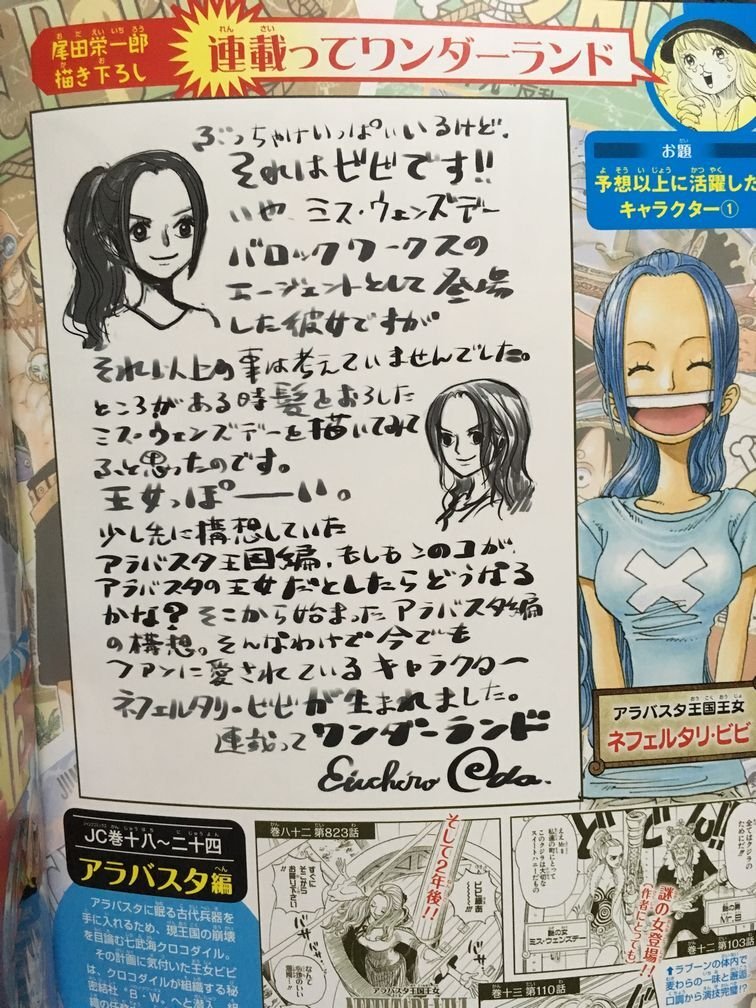 尾田栄一郎
描き下ろし
連載ってワンダーランド
お題
予想以上に活躍した
キャラクター①
ぶっちゃけいっぱいいるけど、
それはビビです!!
いや、ミス・ウェンズデー
バロックワークスの
エージェントとして登場
した彼女ですが。
それ以上の事は考えていませんでした。
ところがある時髪をおろした
ミス・ウェンズデーを描いてみて
ふと思ったのです。
王女っぽーい。
少し先に構想していた
アラバスタ王国編、もしもこのコが、
アラバスタの王女だとしたらどうなる
かな?そこから始まったアラバスタ編
の構想。そんなわけで今でも
ファンに愛されているキャラクター
ネフェルタリ・ビビが生まれました。
連載ってワンダーランド
Eiichiro Oda.
アラバスタ王国王女
ネフェルタリ・ビビ
JC巻十八〜二十四
アラバスタ編
アラバスタに眠る古代兵器を
手に入れるため、現王国の崩壊
を目論む七武海クロコダイル。
その計画に気付いた王女ビビ
は、クロコダイルが組織する秘
密結社“B・W”へと潜入。組
巻八十二 第823話
そして2年後!!
アラバスタ王国王女
巻十三 第110話
謎の女登場!!
(作者にとっても)
謎の女
ミス・ウェンズデー
巻十二 第103話
↑ラブーンの体内で
麦わらの一味と邂逅
口調から演技完璧!?